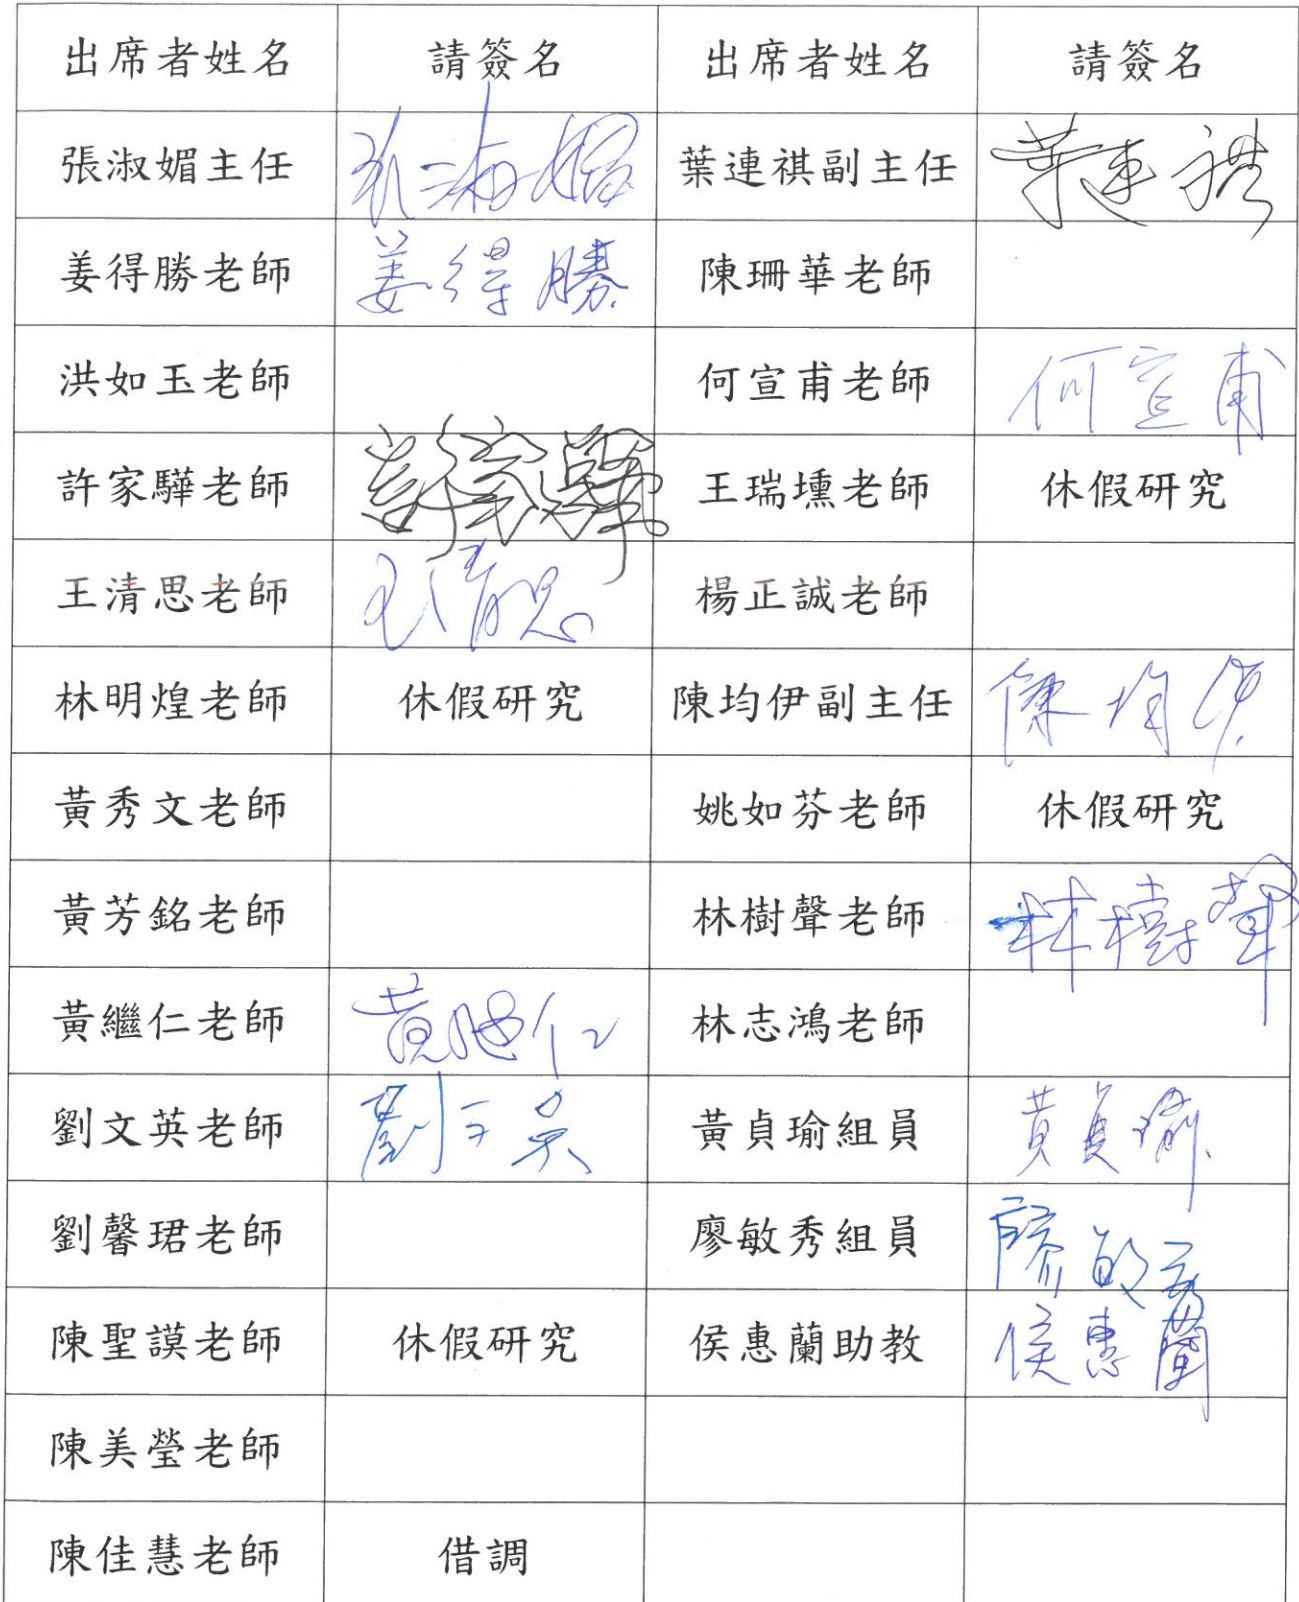 出席者姓名 請簽名 出席者姓名 請簽名
張淑媚主任 張淑媚 葉連祺副主任 葉連祺
姜得勝老師 姜得勝 陳珊華老師
洪如玉老師 何宣甫老師 何宣甫
許家驊老師 許家驊 王瑞壎老師 休假研究
王清思老師 王清思 楊正誠老師
林明煌老師 休假研究 陳均伊副主任 陳均伊
黃秀文老師 姚如芬老師 休假研究
黃芳銘老師 林樹聲老師 林樹聲
黃繼仁老師 黃繼仁 林志鴻老師
劉文英老師 劉文英 黃貞瑜組員 黃貞瑜
劉馨珺老師 廖敏秀組員 廖敏秀
陳聖謨老師 休假研究 侯惠蘭助教 侯惠蘭
陳美瑩老師
陳佳慧老師 借調